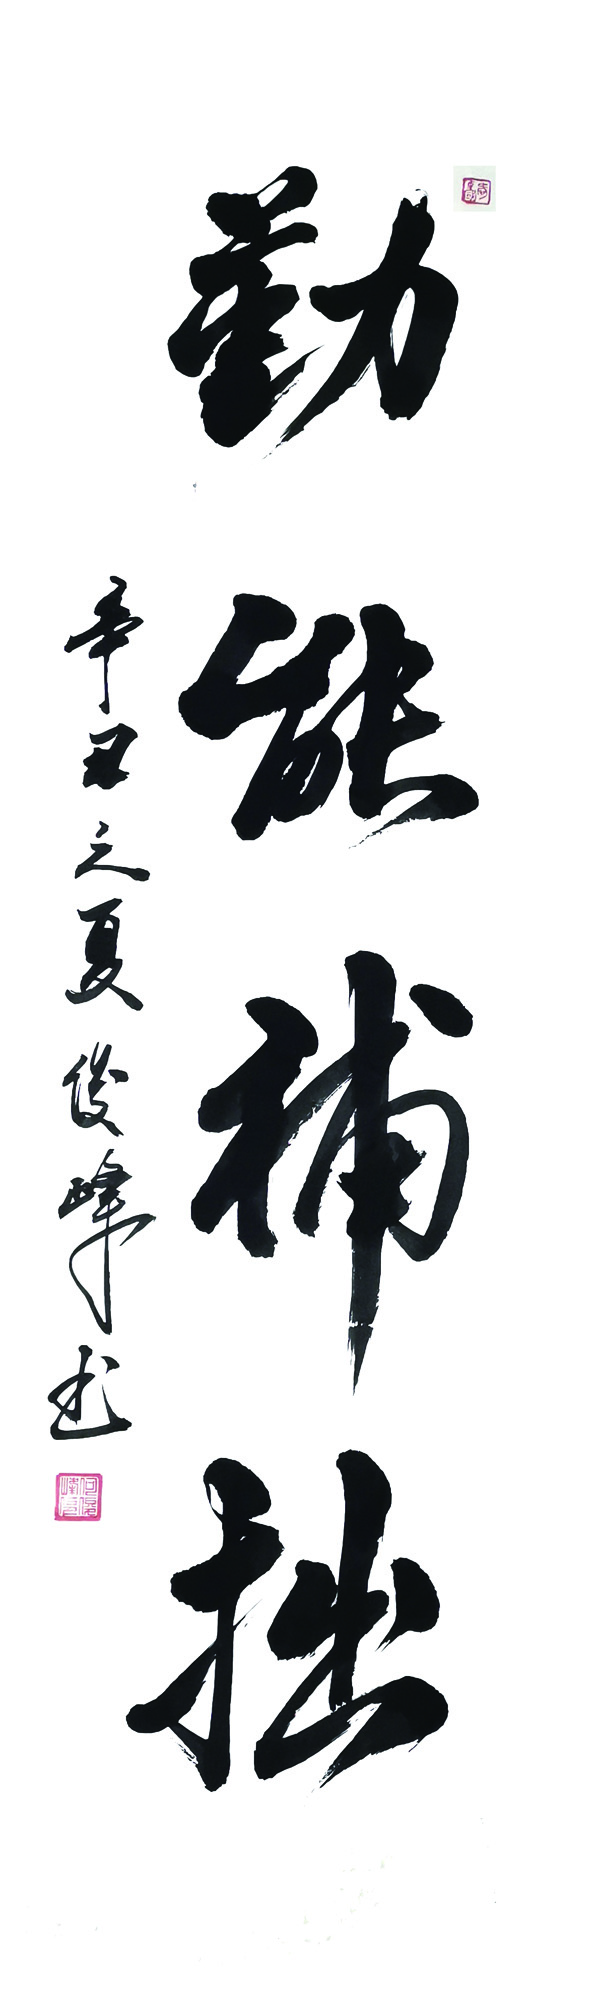 勤能補拙
辛丑之夏俊峰书